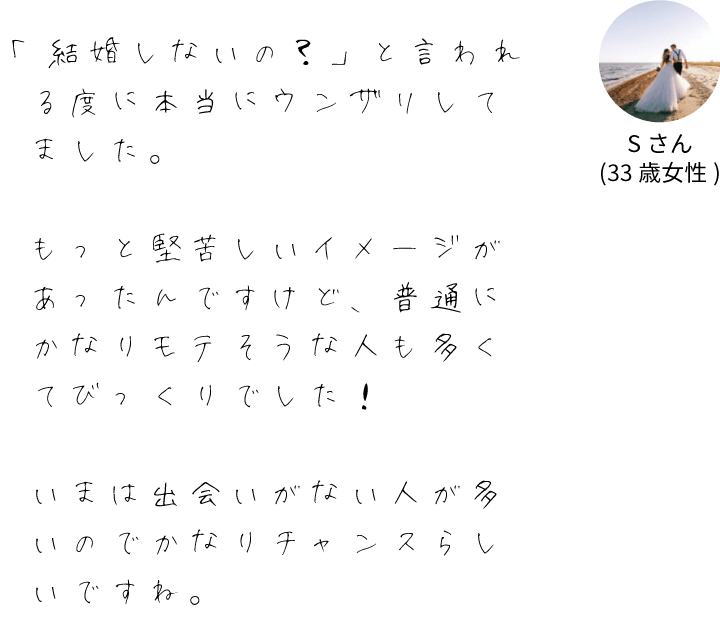 「結婚しないの?」と言われ
る度に本当にウンザリして
ました。
もっと堅苦しいイメージが
あったんですけど、普通に
かなりモテそうな人も多く
てびっくりでした!
いまは出会いがない人が多
いのでかなりチャンスらし
いですね。
Sさん
(33歳女性)